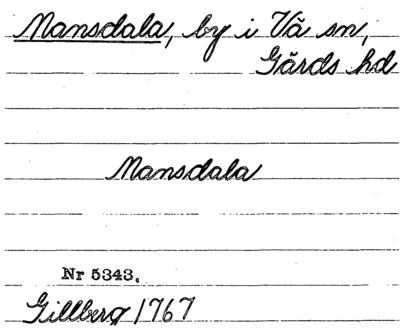 Mansdala, by i Vä sn,
Gärds hd
Mansdala
Nr 5343.
Gillberg 1767